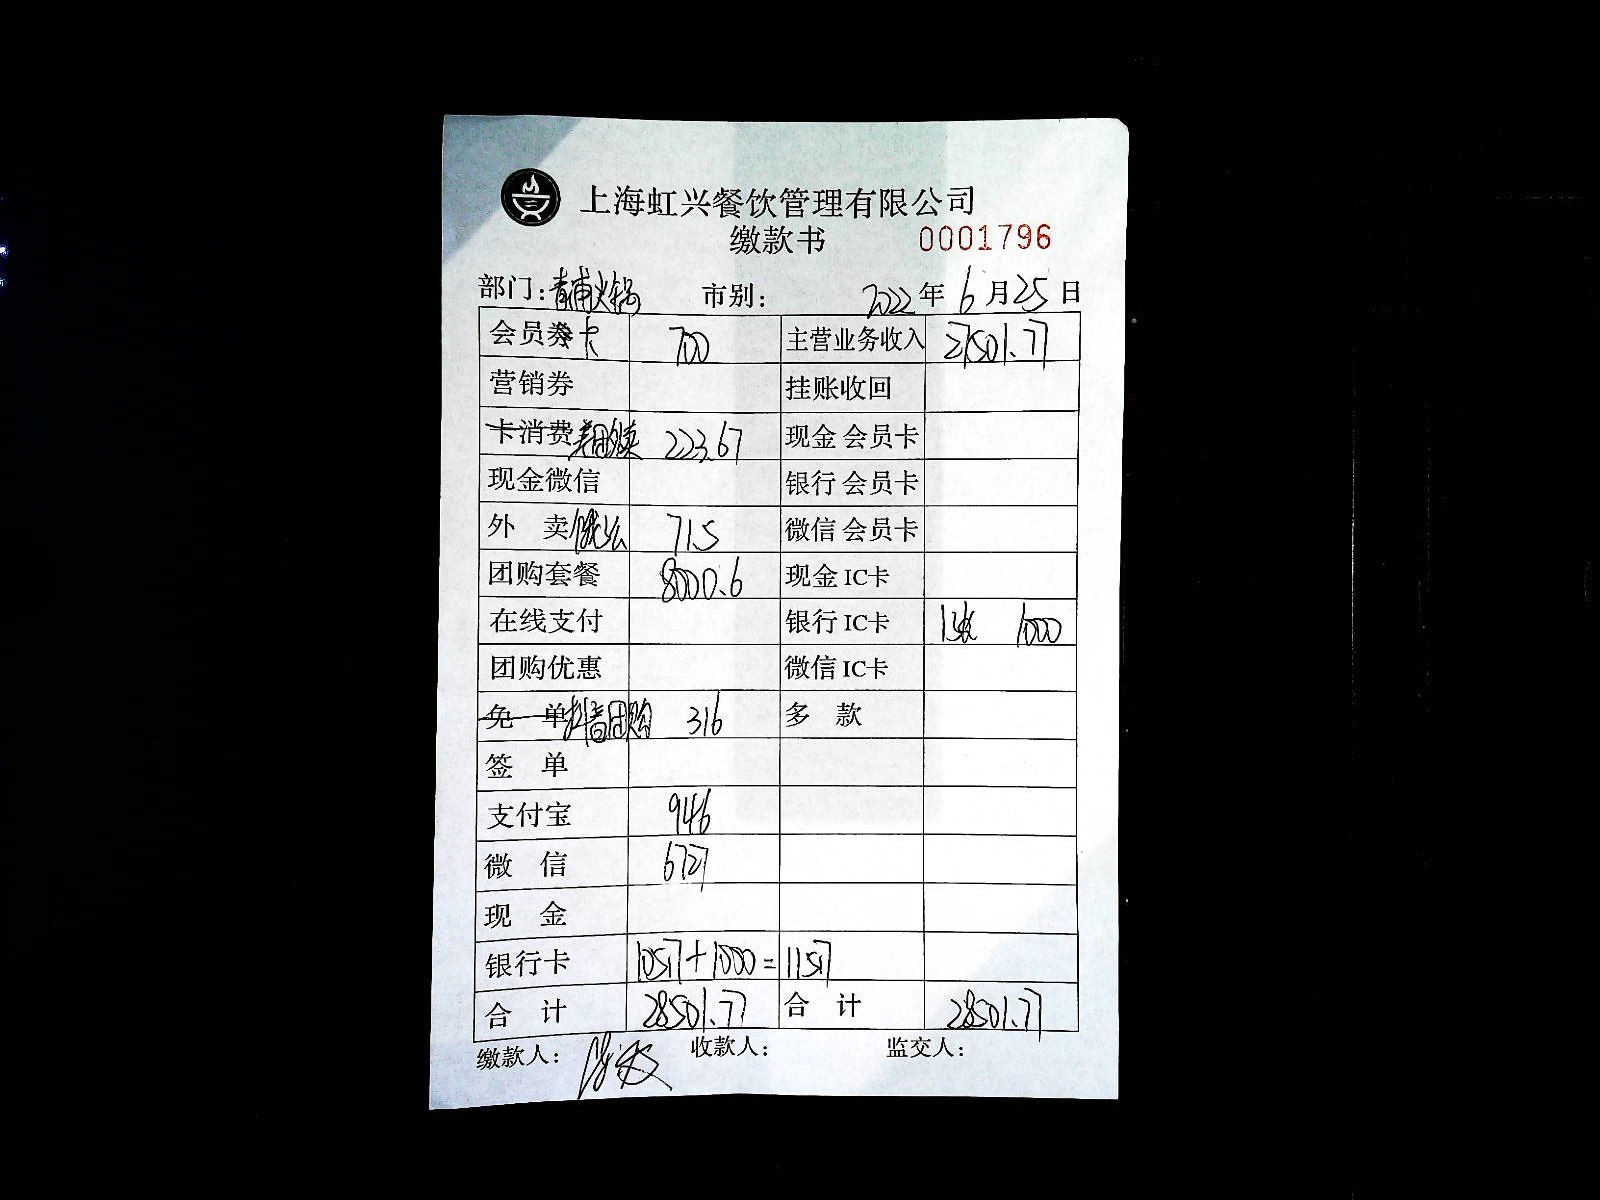 上海虹兴餐饮管理有限公司
缴款书 0001796
部门：青浦火锅 市别： 2022年6月25日
会员券卡 700 主营业务收入 27501.77
营销券 挂账收回
卡消费美团外卖 223.67 现金会员卡
现金微信 银行会员卡
外 卖饿了么 71.5 微信会员卡
团购套餐 8000.6 现金IC卡
在线支付 银行IC卡 1张 1000
团购优惠 微信IC卡
免 单抖音团购 316 多 款
签 单
支付宝 946
微 信 6727
现 金
银行卡 10517+1000=11517
合 计 28501.77 合 计 28501.77
缴款人： 收款人： 监交人：